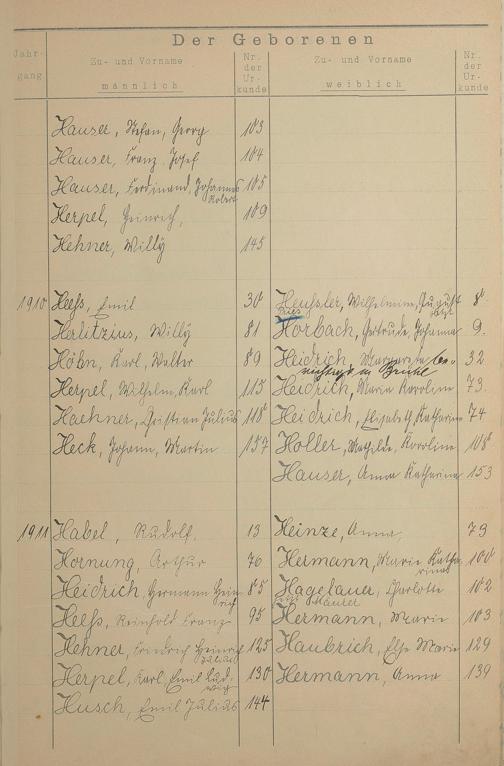 Der Geborenen
Jahr-
gang
Zu- und Vorname
männlich
Nr.
der
Ur-
kunde
Zu- und Vorname
weiblich
Nr.
der
Ur-
kunde
Hauser, Stefan, Georg 103
Hauser, Franz Josef 104
Hauser, Ferdinand, Johannes 105
Robert
Herpel, Heinrich, 109
Hehner, Willy 145
1910 Heeß, Emil 30 Heußler, Wilhelmine, Auguste 8
Herlitzius, Willy 81 Horbach, Gertrude, Johanna 9.
Höhn, Karl, Walter 89 Heidrich, Margarete 32
Herpel, Wilhelm, Karl 115 Heidrich, Maria Karoline 73
Haehner, Christian Julius 118 Heidrich, Elisabeth, Katharina 74
Heck, Johann, Martin 157 Holler, Mathilde, Karoline 108
Hauser, Anna Katharina 153
1911 Habel, Rudolf, 13 Heinze, Anna, 79
Hornung, Arthur 76 Hermann, Marie Katha- 100
rina
Heidrich, Hermann Hein- 85 Hagelauer, Charlotte 102
rich
Heeß, Reinhold Franz 95 Hermann, Marie 103
Hehner, Friedrich Heinrich 125 Haubrich, Else Marie 129
Julius
Herpel, Karl, Emil Lud- 130 Hermann, Anna 139
wig
Husch, Emil Julius 144